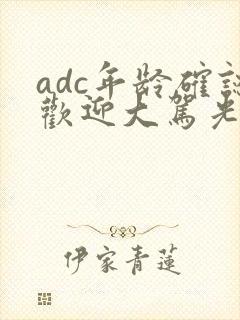 adc年龄確認
歡迎大駕光
伊家青蓮